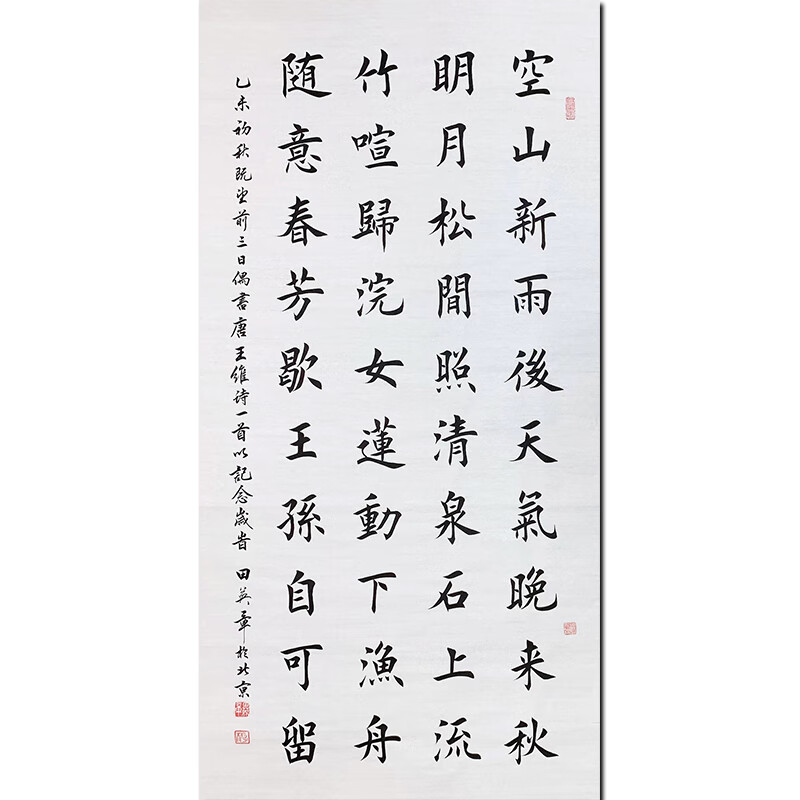 空山新雨後天氣晚来秋
明月松間照清泉石上流
竹喧歸浣女蓮動下漁舟
随意春芳歇王孫自可留
乙未初秋既望前三日偶書唐王維诗一首以記念歲昔 田英章於北京